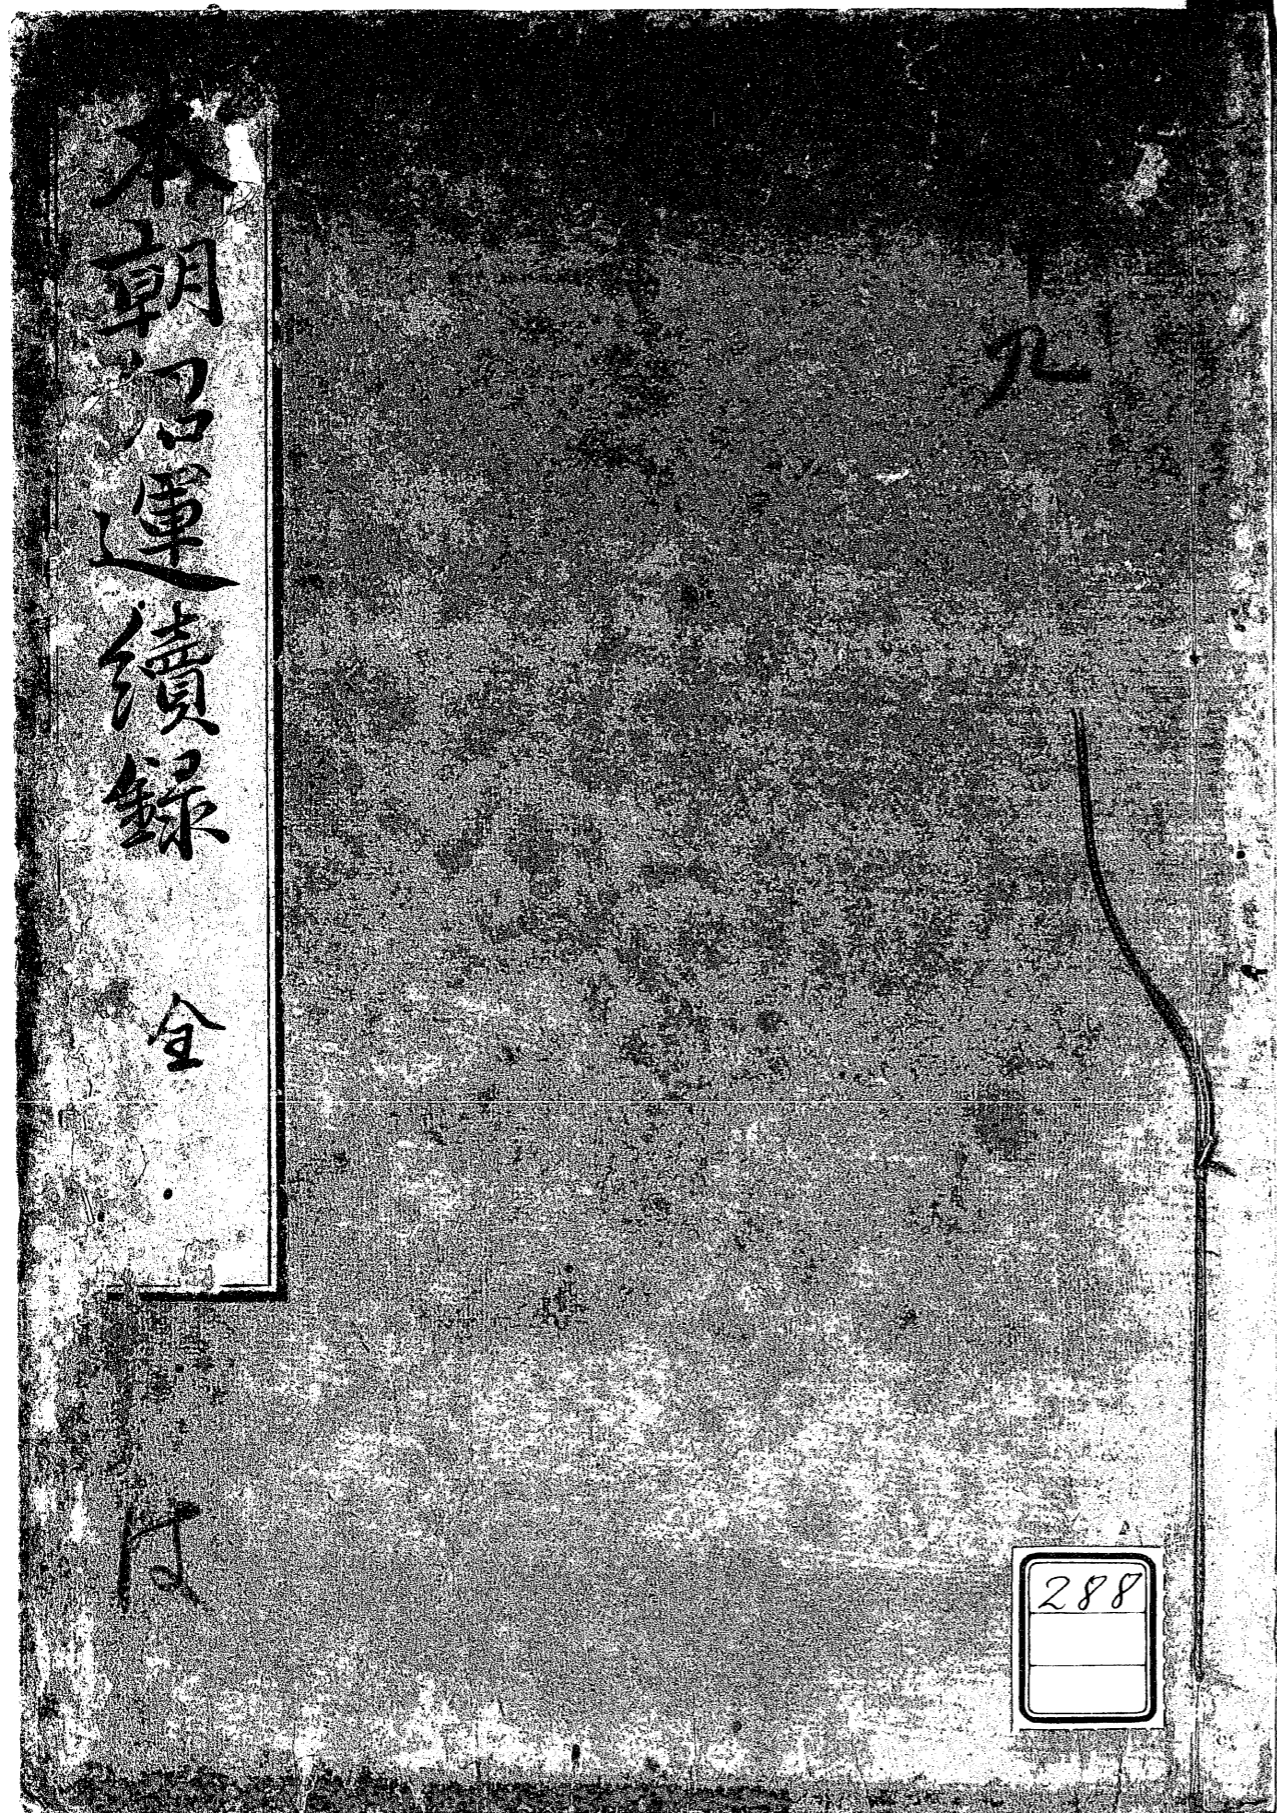 九
本朝紹運續録 全
は
288